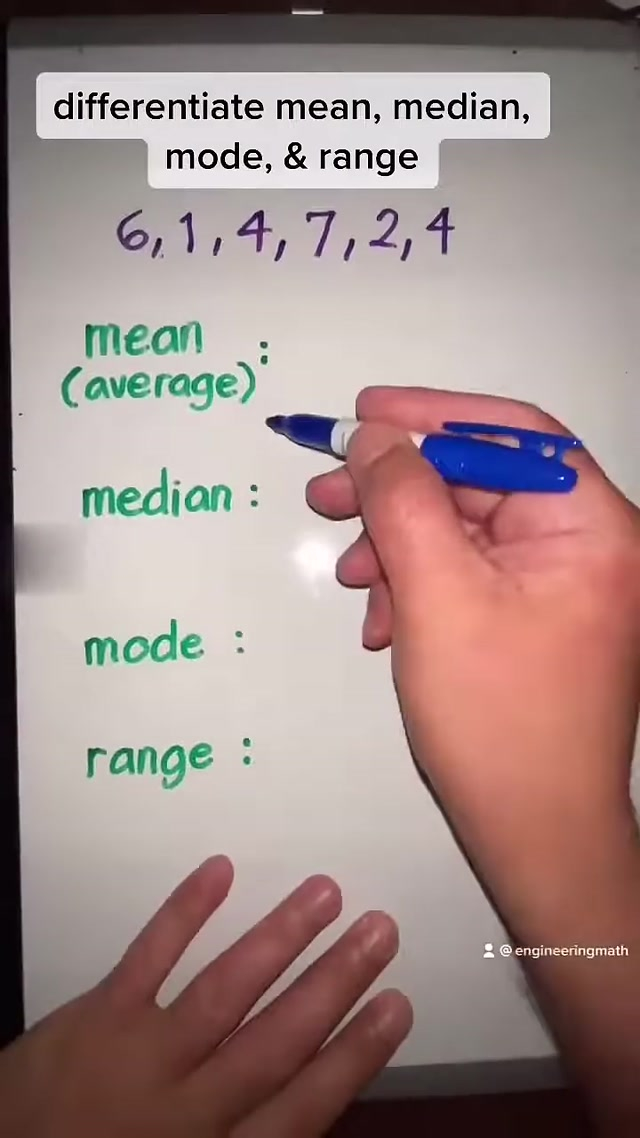 differentiate mean, median,
mode, & range
6, 1, 4, 7, 2, 4
mean
(average) :
median :
mode :
range :
@engineeringmath